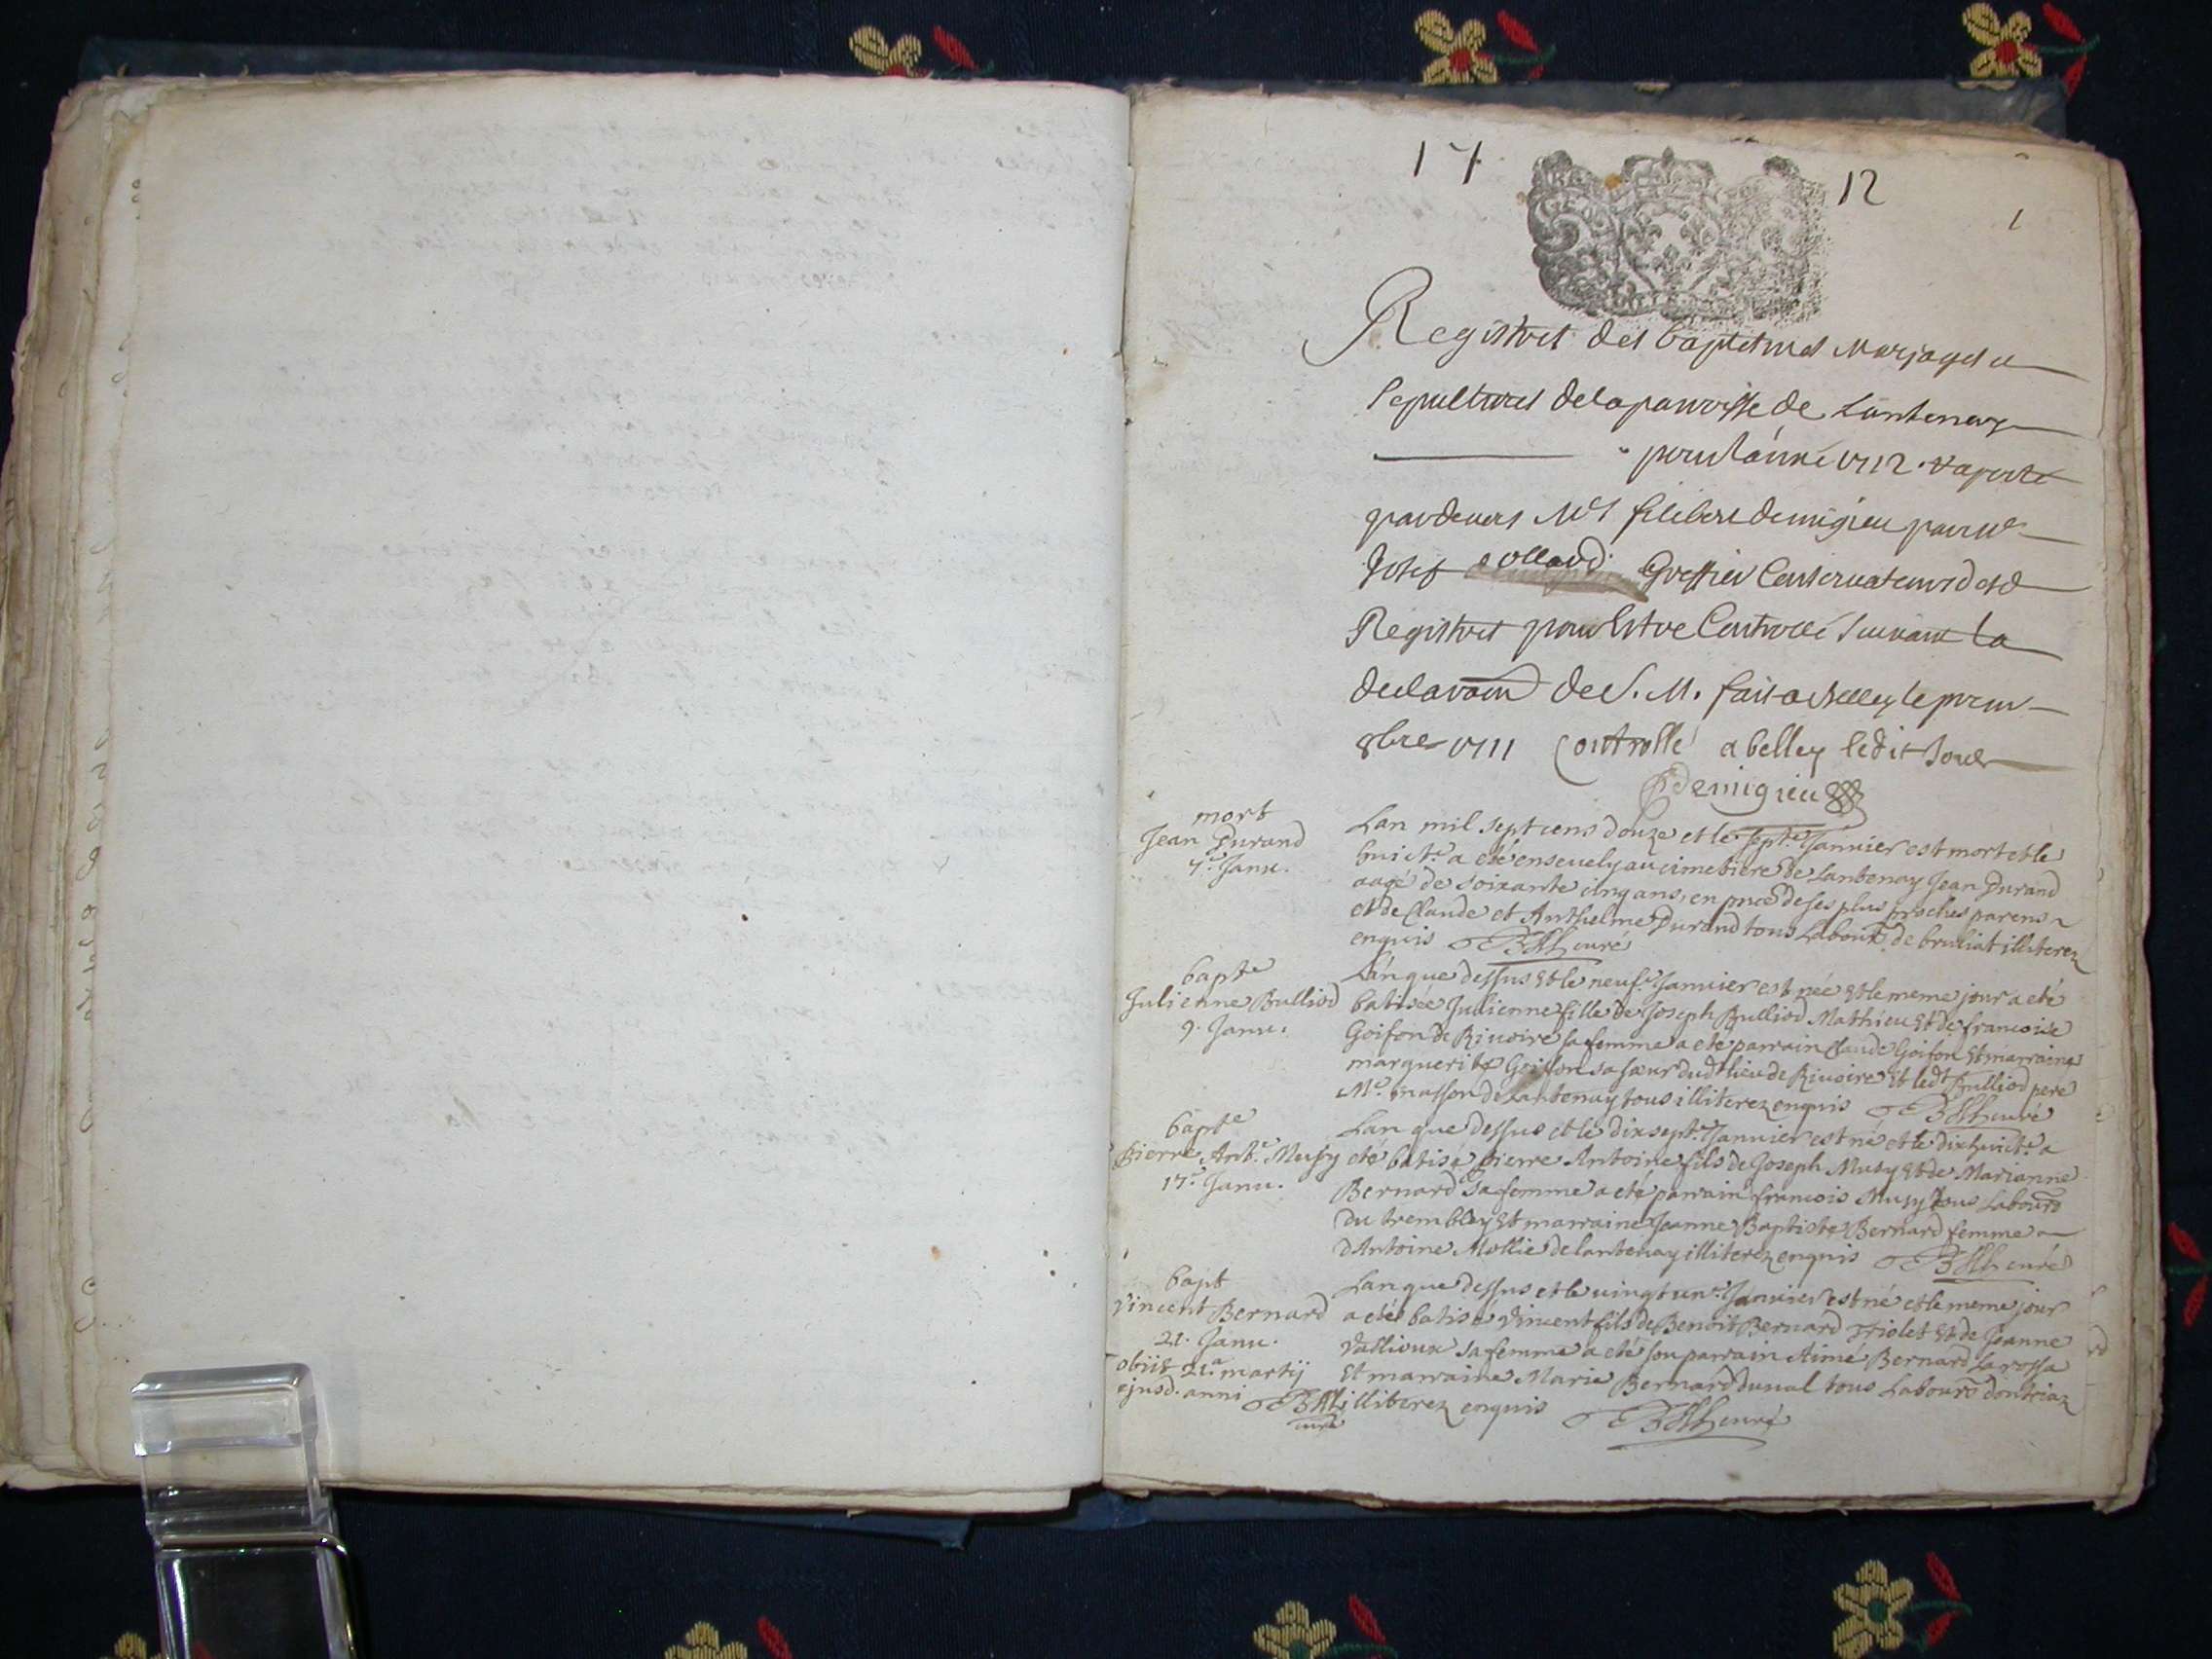 17 12
1
Registres des baptesmes Mariages et
sepultures de la parroisse de Lantenay
pour lánné 1712. raporté
pardevers Mes filibere demigieu par me
Josef collard Greffier Conservateur desd
Registres pour Estre Controllé suivant la
declaraōn de S. M. fait a belley le prem
8bre 1711 Controllé a belley ledit Jour
demigieu
mort
Jean Durand
7e. Janu.
Lan mil sept cens douze et le septe. Janvier est mort et le
huicte. a eté ensevely au cimetiere de Lantenay Jean Durand
aagé de soixante cinq ans, en pnce de ses plus proches parens
et de Claude et Anthelme Durand tous Labours. de bruliat illiterez
enquis curé
bapte
Julienne Bulliod
9. Janu.
Lán que dessus Et le neufe. Janvier est née Et le meme jour a eté
batisée Julienne fille de Joseph Bulliod Mathieu Et de francoise
Goifon de Rivoire sa femme a eté parrain Claude Goifon Et marraine
marguerite Goifon sa sœur dudt lieu de Rivoire Et ledt Bulliod pere
Me. masson de Lantenay tous illiterez enquis curé
bapte
Pierre Ante. Musy
17e. Janu.
Lan que dessus et le dix septe. Janvier est né et le dixhuicte. a
eté batisé pierre Antoine fils de Joseph Musy Et de Marianne
Bernard sa femme a eté parrain francois Musy tous Labours
du trembley Et marraine Jeanne Baptiste Bernard femme
dAntoine Mollie de lantenay illiterez enquis curé
bapt
Vincent Bernard
21. Janu.
obiit 21.a martij
ejusd. anni
curé
Lan que dessus et le vingt une. Janvier est né et le meme jour
a eté batisé Vincent fils de Benoit Bernard Triolet Et de Jeanne
Vallioux sa femme a eté son parrain Aimé Bernard Larossa
Et marraine Marie Bernard duval tous Labours dontriaz
illiterez enquis curé